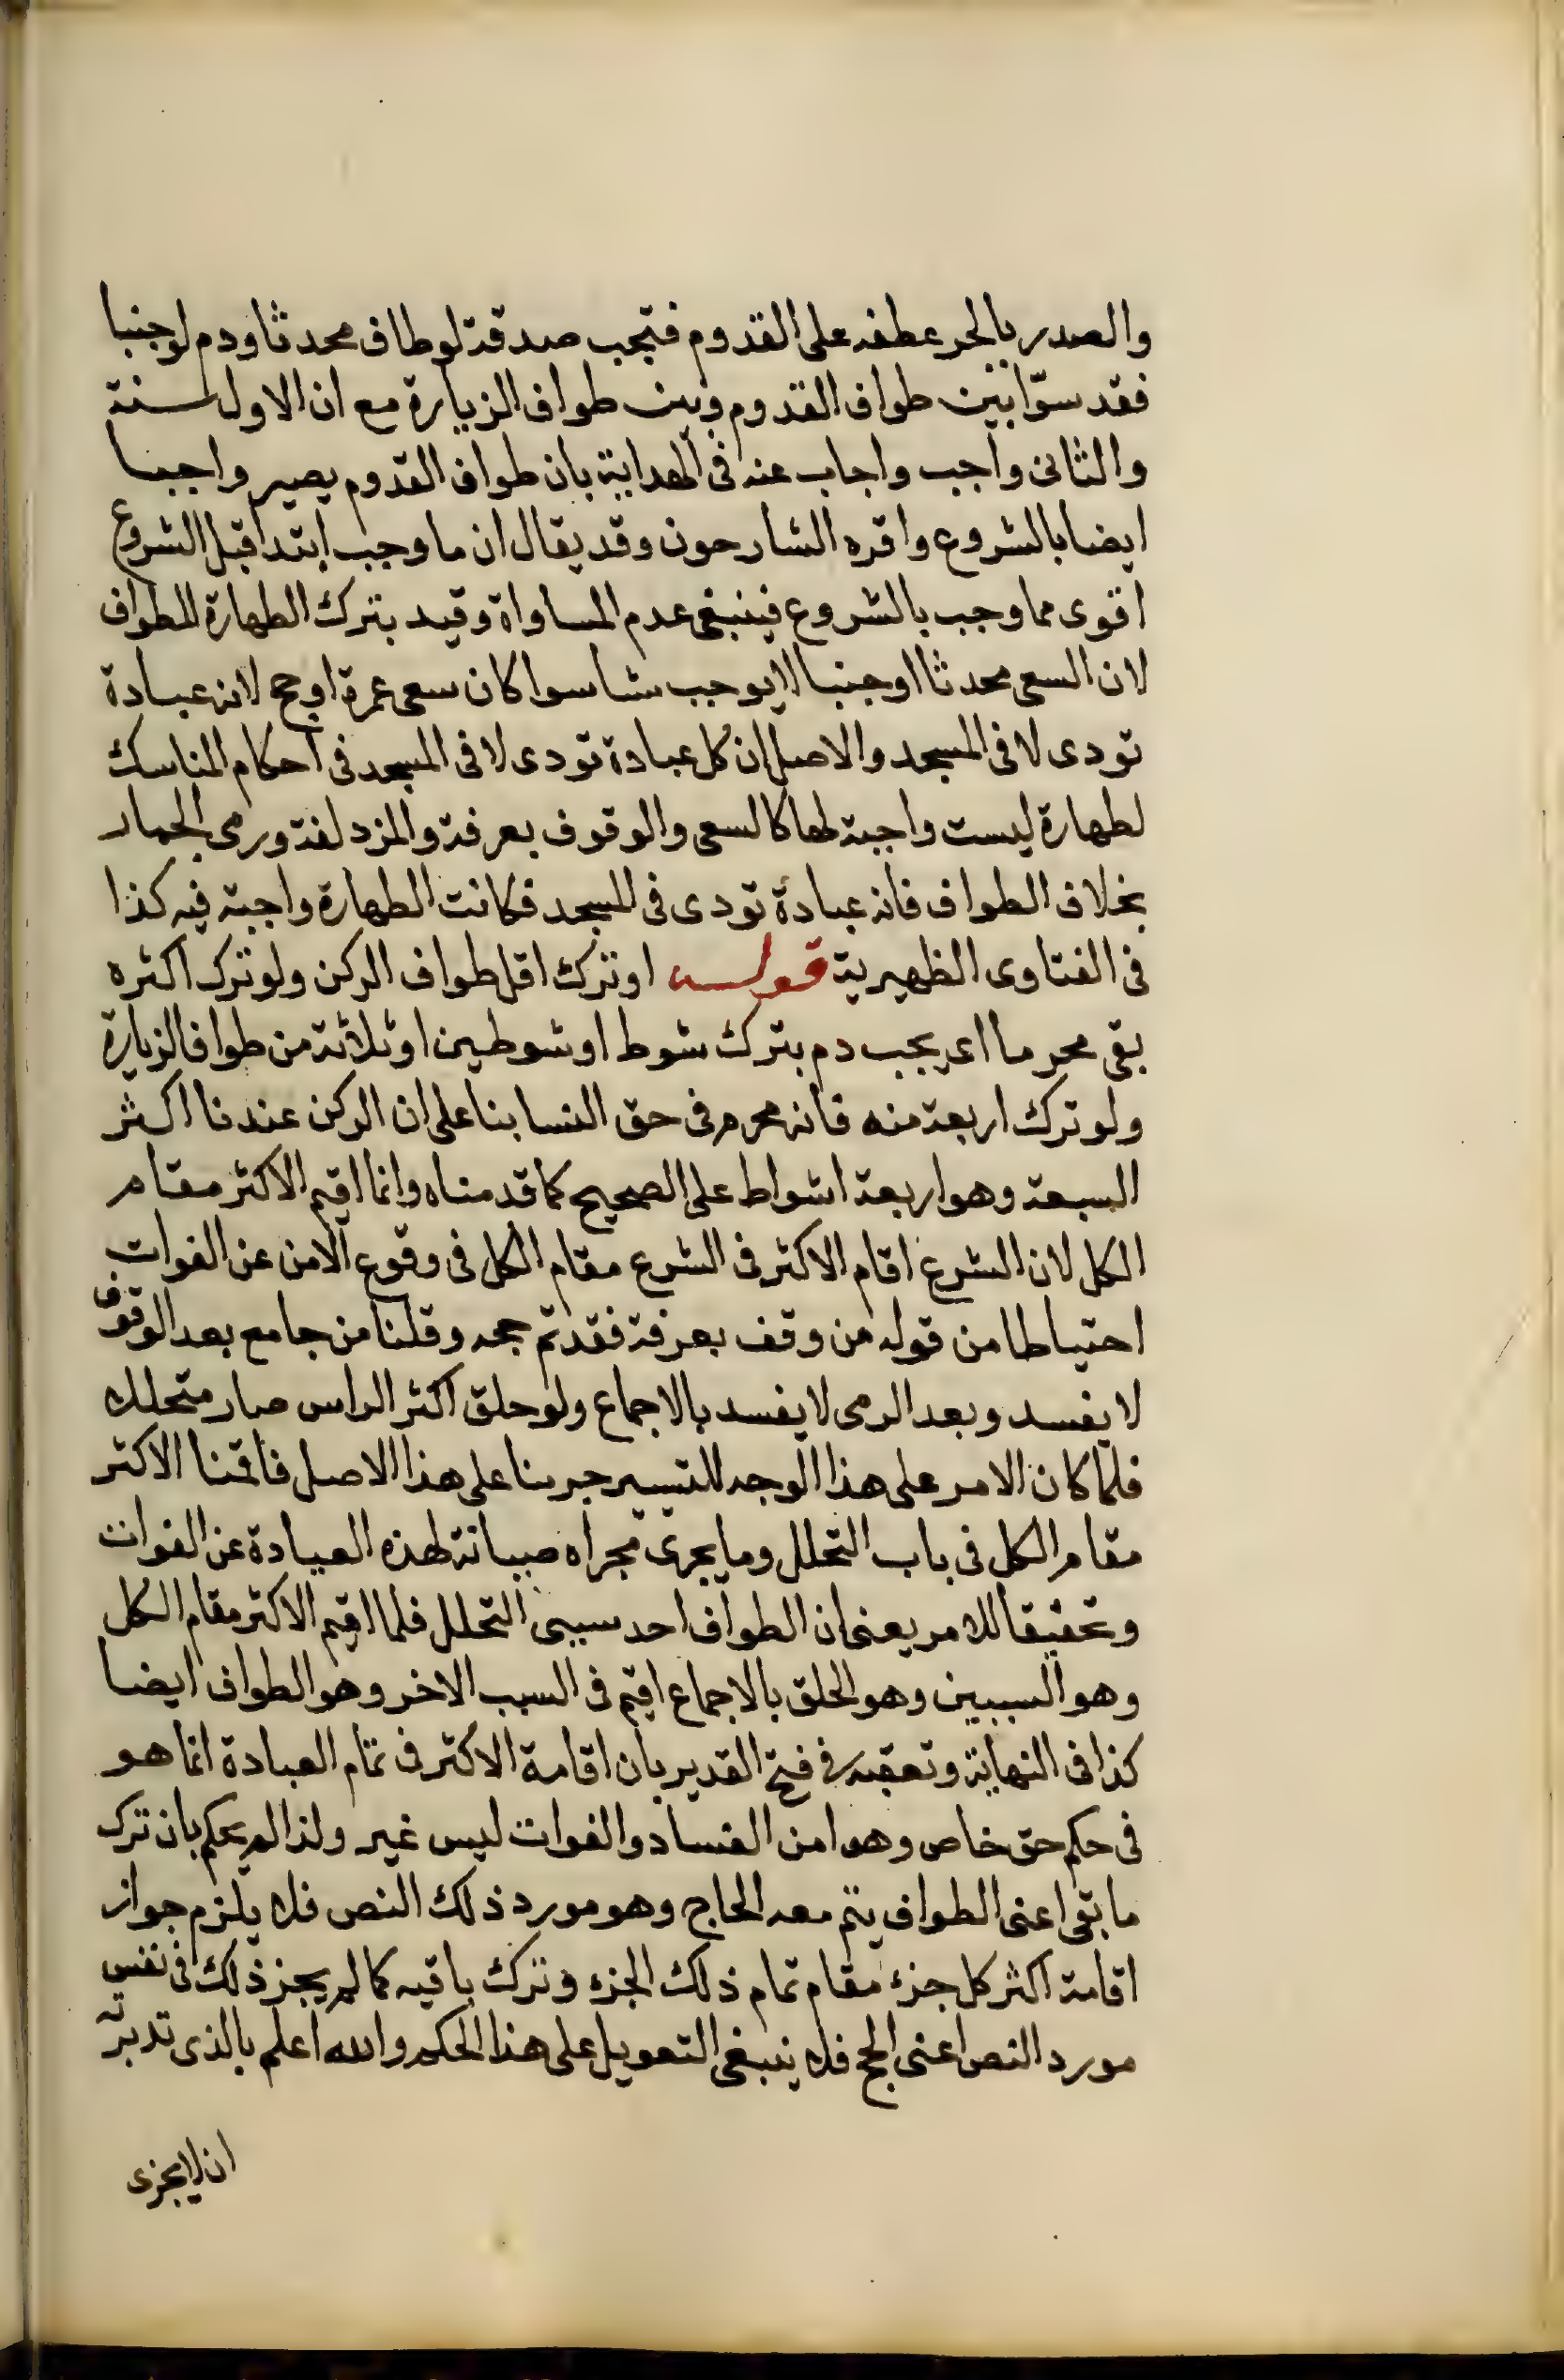 والصدر بالجر عطفه على القدوم فتجب صدقة لو طاف محدثا ودم لو جنبا
فقد سوّا بين طواف القدوم وبين طواف الزيارة مع ان الاول سنة
والثانى واجب واجاب عنه فى الهداية بان طواف القدوم يصير واجبا
ايضا بالشروع واقره الشارحون وقد يقال ان ما وجب ابتدا قبل الشروع
اقوى مما وجب بالشروع فينبغى عدم المساواة وقيد بترك الطهارة للطواف
لان السعى محدثا او جنبا لا يوجب شا سوا كان سعى عمرة او حج لانه عبادة
تودى لا فى المسجد والاصل ان كل عبادة تودى لا فى المسجد فى احكام المناسك
لطهارة ليست واجبة لها كالسعى والوقوف بعرفة والمزدلفة ورمى الجمار
بخلاف الطواف فانه عبادة تودى فى المسجد فكانت الطهارة واجبة فيه كذا
فى الفتاوى الظهيرية قوله او ترك اقل طواف الركن ولو ترك اكثره
بقى محرما اى يجب دم بترك شوط او شوطين او ثلاثة من طواف الزيارة
ولو ترك اربعة منه فانه محرم فى حق النسا بنا على ان الركن عندنا اكثر
السبعة وهو اربعة اشواط على الصحيح كما قدمناه وانما اقيم الاكثر مقام
الكل لان الشرع اقام الاكثر فى الشرع مقام الكل فى وقوع الامن عن الفوات
احتياطا من قوله من وقف بعرفة فقد تم حجه وقلنا من جامع بعد الوقوف
لا يفسد وبعد الرمى لا يفسد بالاجماع ولو حلق اكثر الراس صار متحللا
فلما كان الامر على هذا الوجه للتيسير جرينا على هذا الاصل فاقمنا الاكثر
مقام الكل فى باب التحلل وما يجرى مجراه صيانة لهذه العبادة عن الفوات
وتحقيقا للامر يعنى ان الطواف احد سببى التحلل فلما اقيم الاكثر مقام الكل
وهو السببين وهو الحلق بالاجماع اقيم فى السبب الاخر وهو الطواف ايضا
كذا فى النهاية وتعقبه فى فتح القدير بان اقامة الاكثر فى تمام العبادة انما هو
فى حكم حق خاص وهو امن الفساد والفوات ليس غير ولذا لم يحكم بان ترك
ما بقى اعنى الطواف يتم معه الحاج وهو مورد ذلك النص فلا يلزم جواز
اقامة اكثر كل جزء مقام تمام ذلك الجزء وترك باقيه كما لم يجز ذلك فى نفس
مورد النص اعنى الحج فلا ينبغى التعويل على هذا الحكم والله اعلم بالذى تدبر به
ان لا يجزى